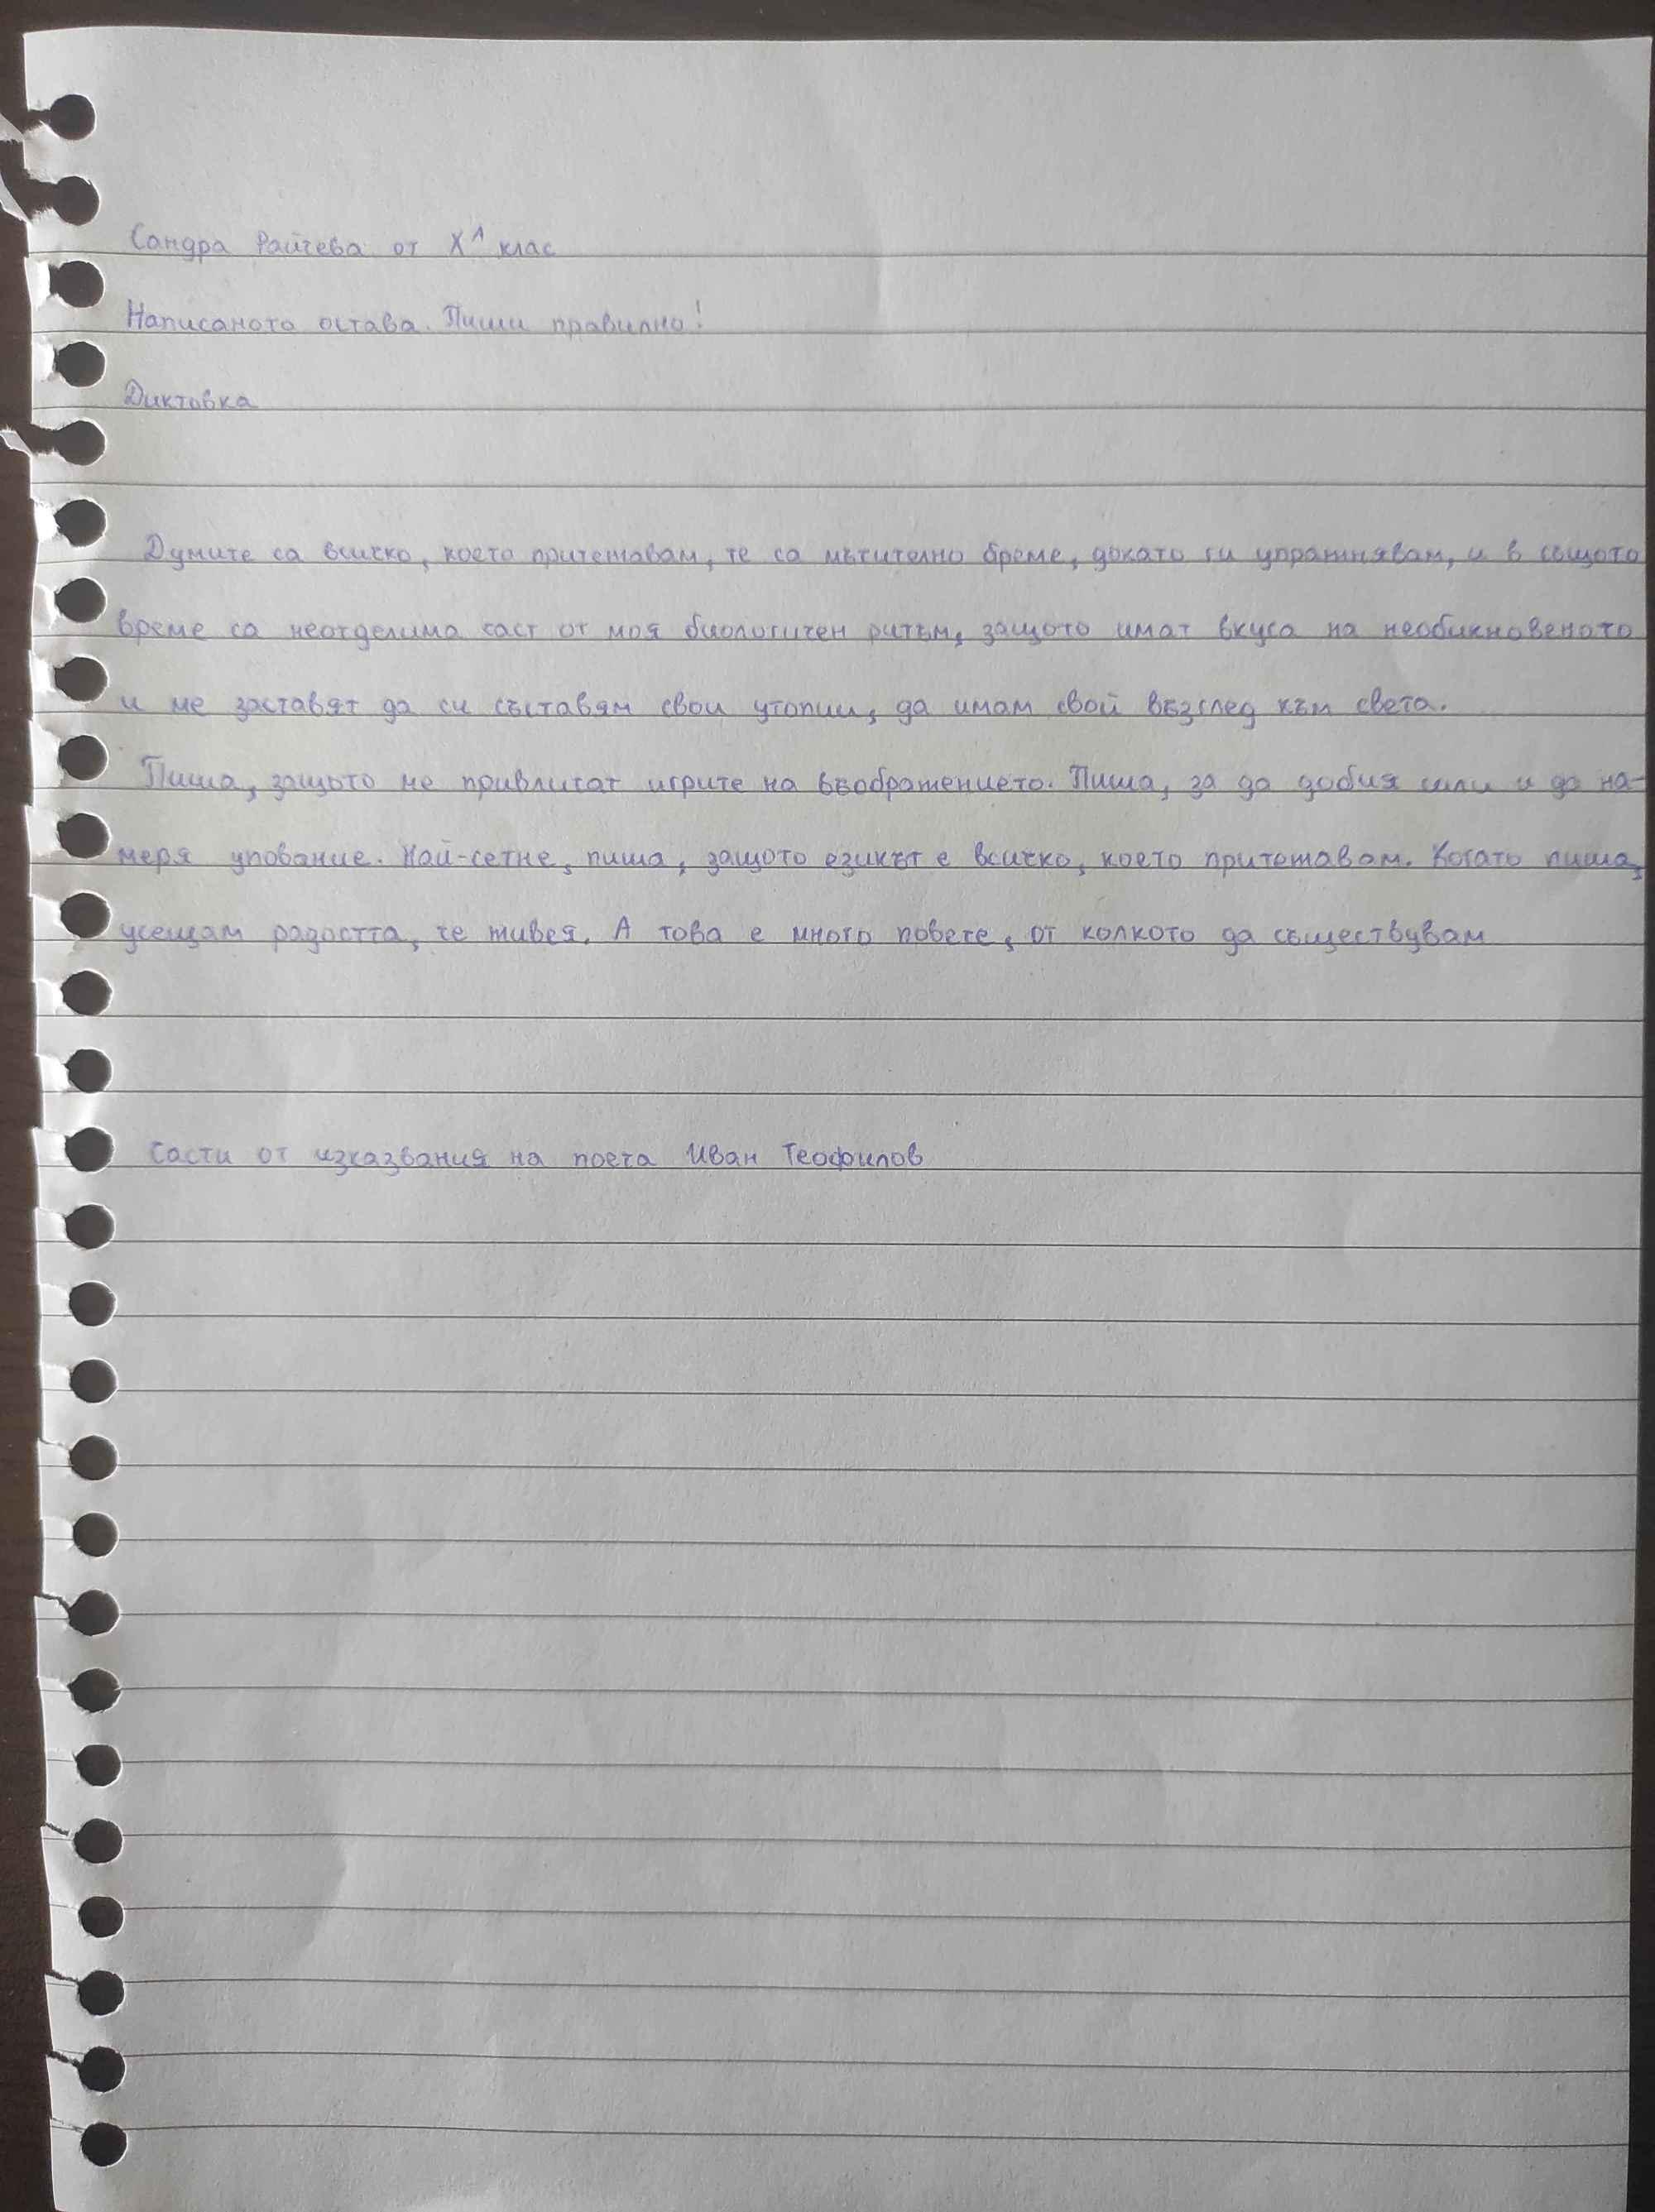 Сандра Райчева от X^Л клас
Написаното остава. Пиши правилно!
Диктовка
Думите са всичко, което притежавам, те са мъчително бреме, докато ги упражнявам, и в същото
време са неотделима част от моя биологичен ритъм, защото имат вкуса на необикновеното
и ме заставят да си съставям свои утопии, да имам свой възглед към света.
Пиша, защото ме привличат игрите на въображението. Пиша, за да добия сили и да на-
меря упование. Най-сетне, пиша, защото езикът е всичко, което притежавам. Когато пиша,
усещам радостта, че живея. А това е много повече, от колкото да съществувам
Части от изказвания на поета Иван Теофилов